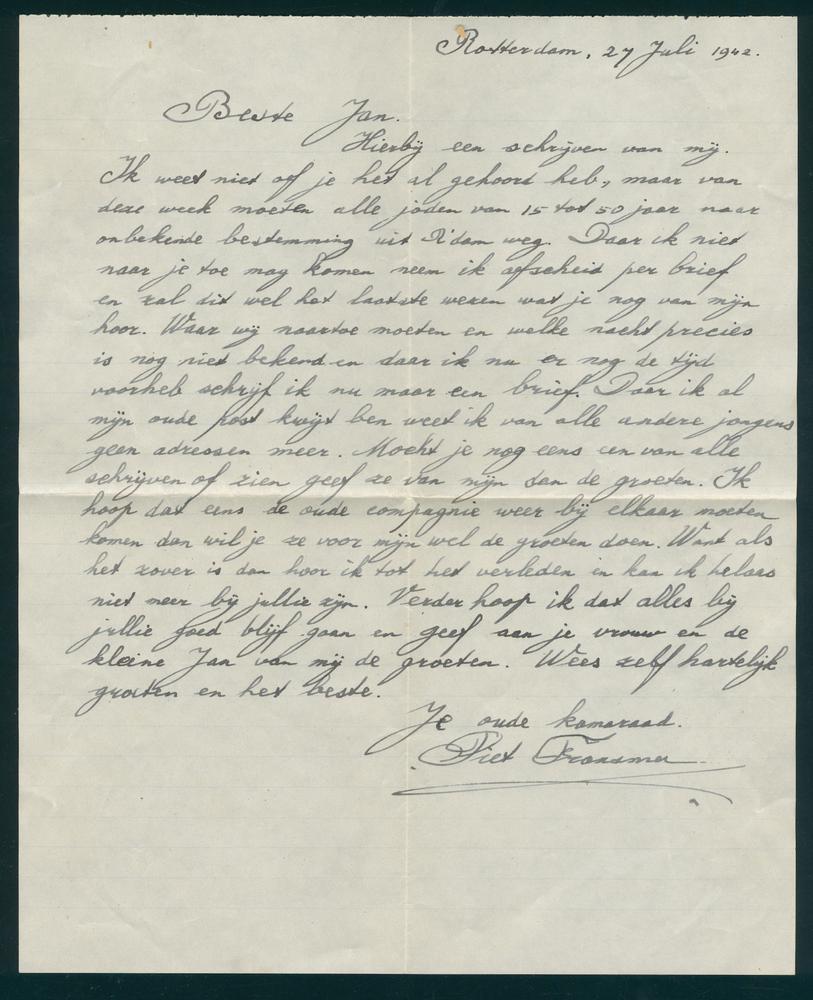 Rotterdam, 27 Juli 1942.
Beste Jan.
Hierbij een schrijven van mij.
Ik weet niet of je het al gehoord heb, maar van
deze week moeten alle joden van 15 tot 50 jaar naar
onbekende bestemming uit R'dam weg. Daar ik niet
naar je toe mag komen neem ik afscheid per brief
en zal dit wel het laatste wezen wat je nog van mijn
hoor. Waar wij naartoe moeten en welke nacht precies
is nog niet bekend en daar ik nu er nog de tijd
voorheb schrijf ik nu maar een brief. Daar ik al
mijn oude post kwijt ben weet ik van alle andere jongens
geen adressen meer. Mocht je nog eens een van alle
schrijven of zien geef ze van mijn dan de groeten. Ik
hoop dat eens de oude compagnie weer bij elkaar moeten
komen dan wil je ze voor mijn wel de groeten doen. Want als
het zover is dan hoor ik tot het verleden en kan ik helaas
niet meer bij jullie zijn. Verder hoop ik dat alles bij
jullie goed blijf gaan en geef aan je vrouw en de
kleine Jan van mij de groeten. Wees zelf hartelijk
groeten en het beste.
Je oude kameraad.
Piet Fransman